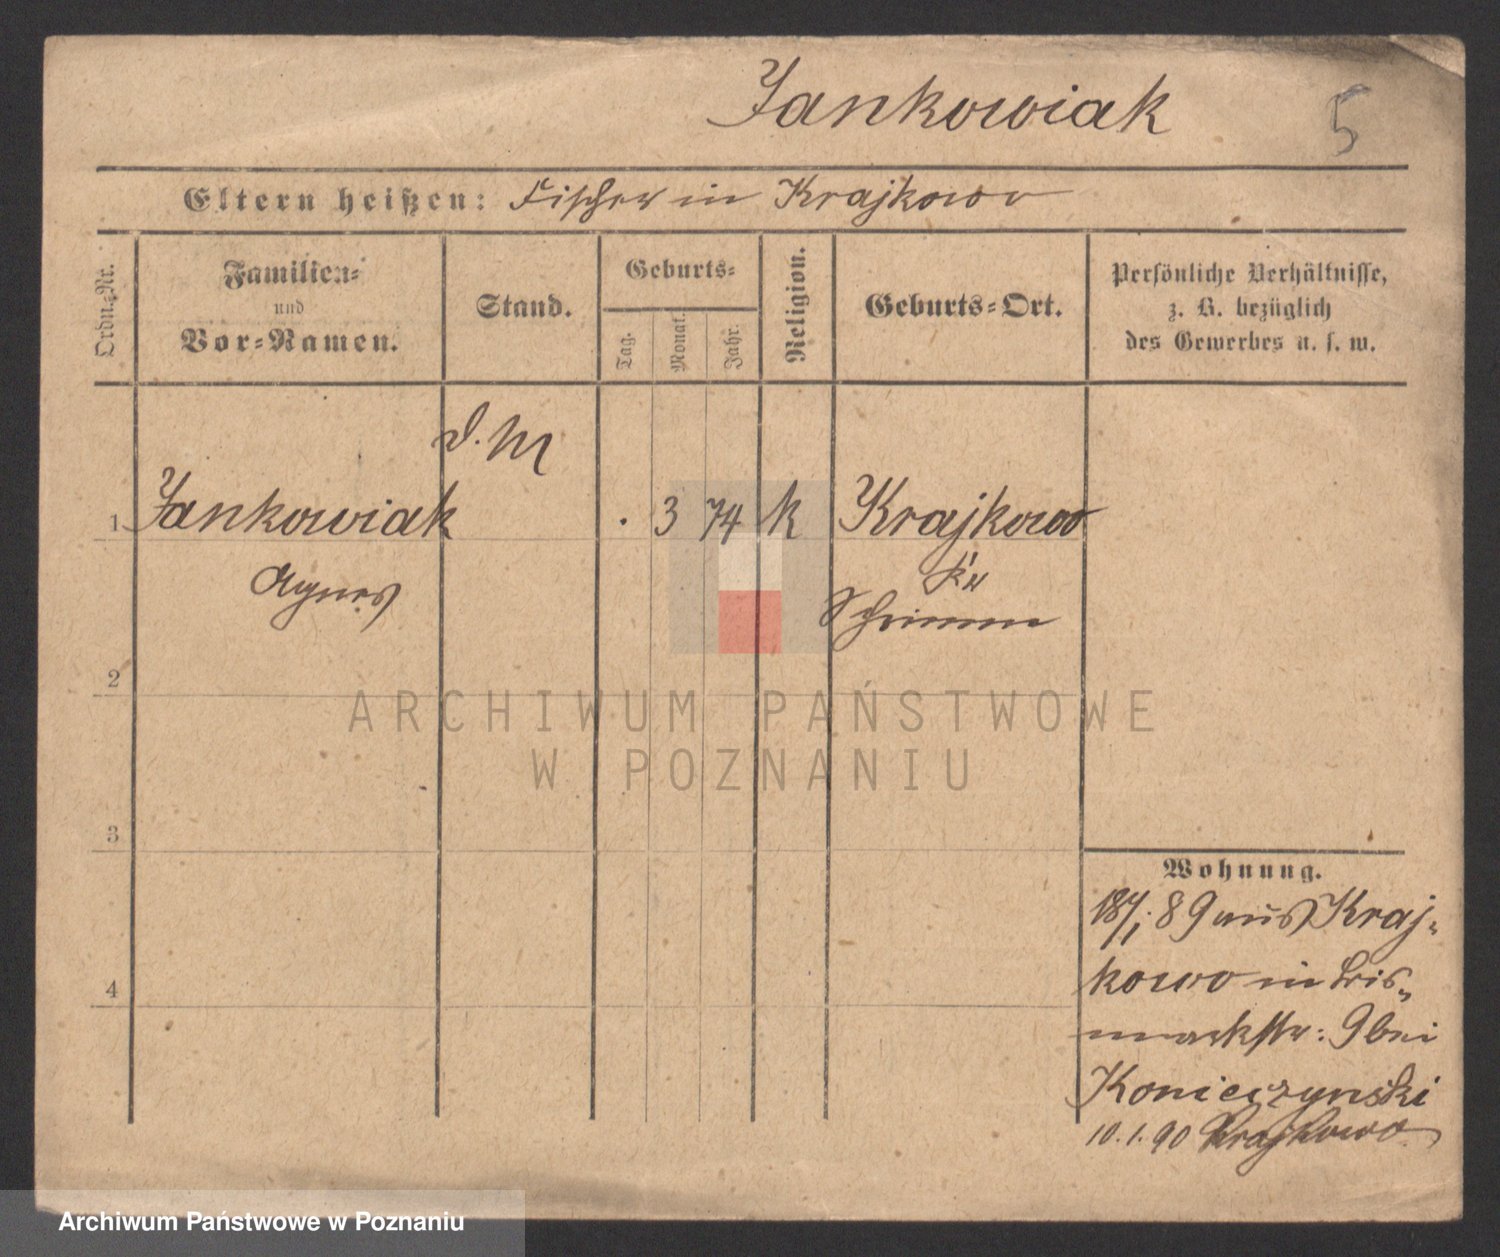 Jankowiak 5
Eltern heißen: Fischer in Krajkowo
Ordn.-Nr.
Familien-
und
Vor-Namen.
Stand.
Geburts-
Tag.
Monat.
Jahr.
Religion.
Geburts-Ort.
Persönliche Verhältnisse,
z. B. bezüglich
des Gewerbes u. s. w.
d. M
1 Jankowiak . 3 74 k Krajkowo
Agnes
Schrimm
2
ARCHIWUM PAŃSTWOWE
W POZNANIU
3
Wohnung.
18/1. 89 aus Kraj-
4
kowo in Bis-
markstr: 9 bei
Konieczynski
10.1.90 Krajkowo
Archiwum Państwowe w Poznaniu